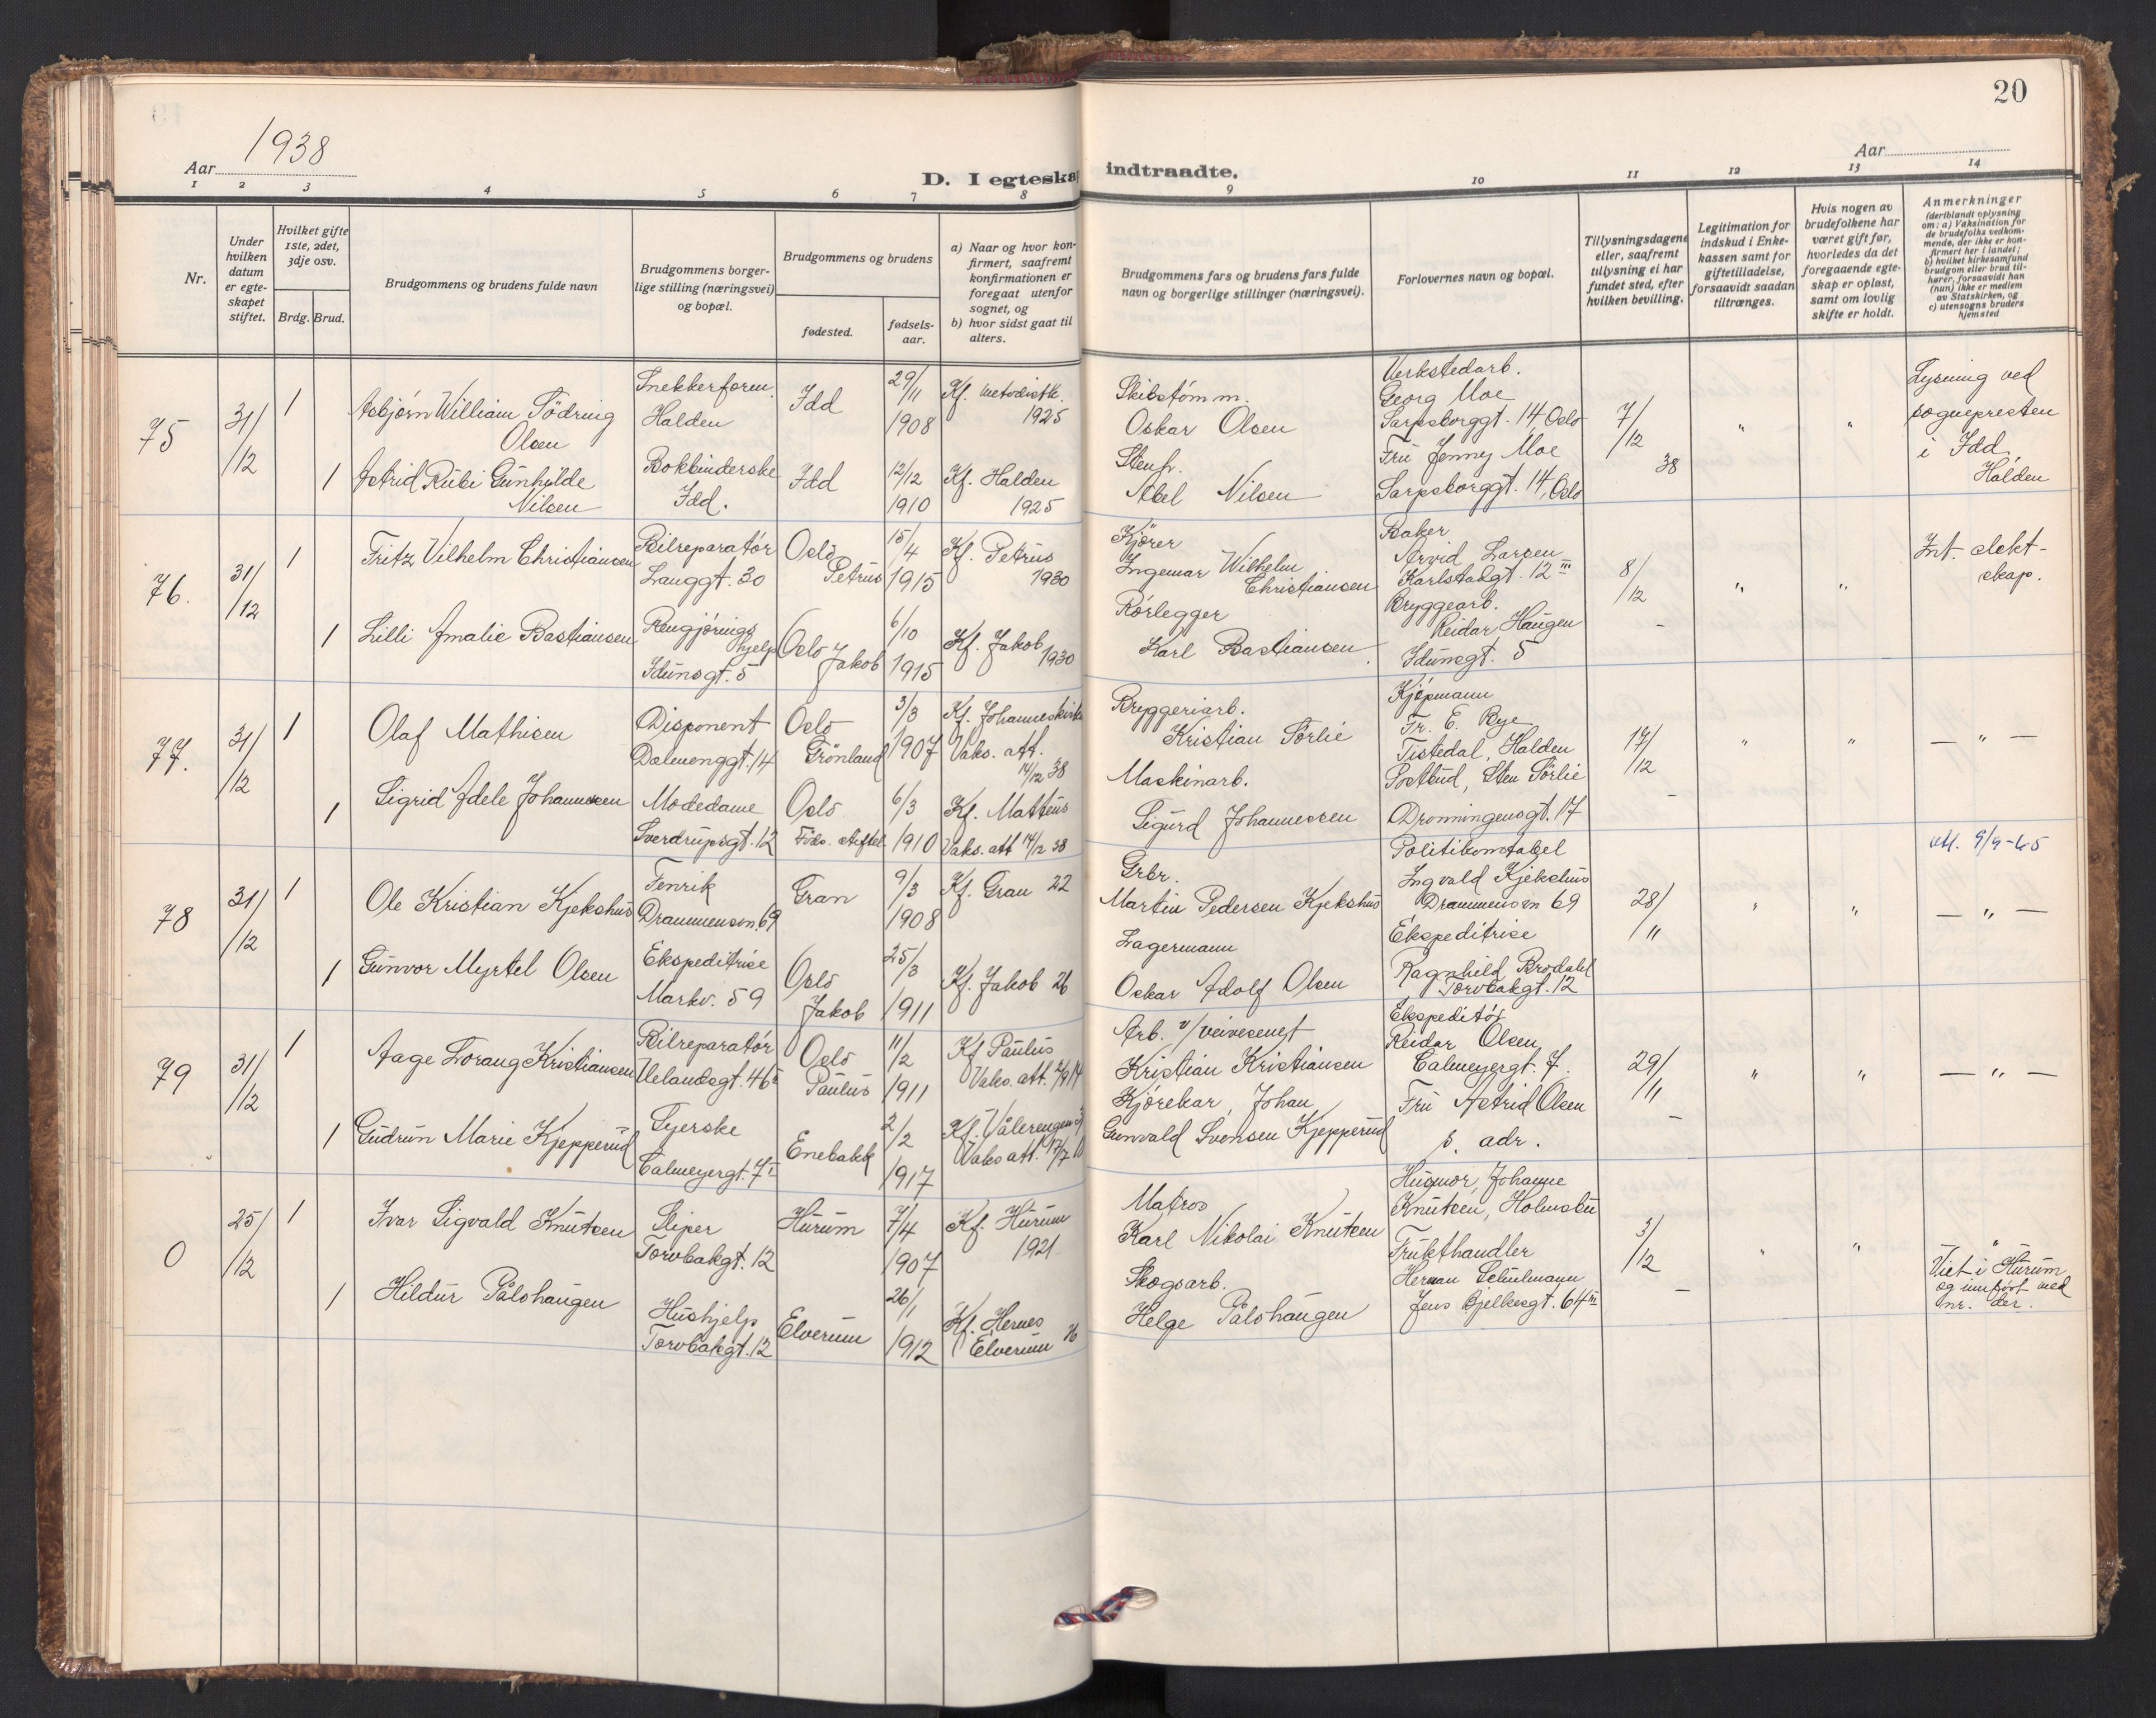 20
Aar 1938
Aar
D. I egteska
indtraadte.
1 2 3 4 5 6 7 8 9 10 11 12 13 14
Nr.
Under
hvilken
datum
er egte-
skapet
stiftet.
Hvilket gifte
1ste, 2det,
3dje osv.
Brdg. Brud.
Brudgommens og brudens fulde navn
Brudgommens borger-
lige stilling (næringsvei)
og bopæl.
Brudgommens og brudens
fødested.
fødsels-
aar.
a) Naar og hvor kon-
firmert, saafremt
konfirmationen er
foregaat utenfor
sognet, og
b) hvor sidst gaat til
alters.
Brudgommens fars og brudens fars fulde
navn og borgerlige stillinger (næringsvei).
Forlovernes navn og bopæl.
Tillysningsdagene
eller, saafremt
tillysning ei har
fundet sted, efter
hvilken bevilling.
Legitimation for
indskud i Enke-
kassen samt for
giftetilladelse,
forsaavidt saadan
tiltrænges.
Hvis nogen av
brudefolkene har
været gift før,
hvorledes da det
foregaaende egte-
skap er opløst,
samt om lovlig
skifte er holdt.
Anmerkninger
(deriblandt oplysning
om: a) Vaksination for
de brudefolks vedkom-
mende, der ikke er kon-
firmert her i landet;
b) hvilket kirkesamfund
brudgom eller brud til-
hører, forsaavidt han
(hun) ikke er medlem
av Statskirken, og
c) utensogns bruders
hjemsted
75
31/12
1
Asbjørn William Södring
Olsen
Snekkerform.
Halden
Idd
29/11
1908
Kf. Metodistk.
1925
Skibstømm.
Oskar Olsen
Verkstedarb.
Georg Moe
Sarpsborggt. 14, Oslo
7/12
38
"
"
Lysning ved
sognepresten
i Idd,
Halden
1
Astrid Rubi Gunhilde
Nilsen
Bokbinderske
Idd.
Idd
12/12
1910
Kf. Halden
1925
Stenh.
Abel Nilsen
Fru Jenny Moe
Sarpsborggt. 14, Oslo
76.
31/12
1
Fritz Vilhelm Christiansen
Bilreparatør
Lauggt. 30
Oslo
Petrus
15/4
1915
Kf. Petrus
1930
Kjörer
Ingemar Wilhelm
Christiansen
Baker
Arvid Larsen
Karlstadgt. 12 III
8/12
"
"
Int. slekt-
skap.
1
Lilli Amalie Bastiansen
Rengjørings
hjelp
Idunsgt. 5
Oslo
Jakob
6/10
1915
Kf. Jakob
1930
Rørlegger
Karl Bastiansen
Bryggearb.
Reidar Haugen
Idunsgt. 5
-
77.
31/12
1
Olaf Mathisen
Disponent
Dalmenggt. 14
Oslo
Grönland
3/3
1907
Kf. Johanneskirke
Vaks. att.
14/12 38
Bryggeriarb.
Kristian Sørlie
Kjøpmann
Fr. E. Bye
Tistedal, Halden
17/12
"
"
— " —
1
Sigrid Adele Johannessen
Modedame
Sverdrupsgt. 12
Oslo
Föds. stiftel.
6/3
1910
Kf. Matteus
Vaks. att 14/12 38
Maskinarb.
Sigurd Johannessen
Postbud, Sten Sørlie
Dronningensgt. 17
-
utt. 9/9-65
78
31/12
1
Ole Kristian Kjekshus
Fenrik
Drammensvn. 69
Gran
9/3
1908
Kf. Gran 22
Grbr.
Martin Pedersen Kjekshus
Politikonstabel
Ingvald Kjekshus
Drammensvn 69
28/11
"
"
— " —
1
Gunvor Myrtel Olsen
Ekspeditrise
Markv. 59
Oslo
Jakob
25/3
1911
Kf. Jakob 26
Lagermann
Oskar Adolf Olsen
Ekspeditrise
Ragnhild Brodahl
Torvbakgt. 12
79
31/12
1
Aage Lorang Kristiansen
Bilreparatør
Uelandsgt. 46
Oslo
Paulus
11/2
1911
Kf Paulus
Vaks. att. 2/9 14
Arb. v/ veivesenet
Kristian Kristiansen
Ekspeditør
Reidar Olsen
Calmeyergt. 7.
29/11
"
"
— " —
1
Gudrun Marie Kjepperud
Syerske
Calmeyergt. 7 I
Enebakk
2/2
1917
Kf. Vålerengen
Vaks att. 17/7
Kjørekar, Johan
Gunvald Svensen Kjepperud
Fru Astrid Olsen
s. adr.
-
0
25/12
1
Ivar Sigvald Knutsen
Sliper
Torvbakgt. 12
Hurum
7/4
1907
Kf. Hurum
1921
Matros
Karl Nikolai Knutsen
Husmor, Johanne
Knutsen, Holmsbu
3/12
"
"
"
Viet i Hurum
og innført med
nr. der.
1
Hildur Pålshaugen
Hushjelp
Torvbakgt. 12
Elverum
26/1
1912
Kf. Hernes
Elverum 26
Skogsarb.
Helge Pålshaugen
Frukthandler
Herman Schulmann
Jens Bjelkesgt. 64 III
-